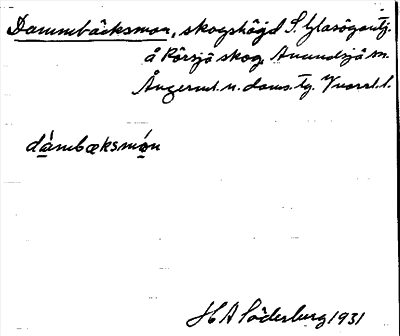 Dammbäcksmon, skogshöjd S. Glasögontj.
å Rörsjö skog, Anundsjö sn.
Ångerml. n. doms. tg. Vnorrl. l.
dàmbæksmón
H A Söderberg 1931